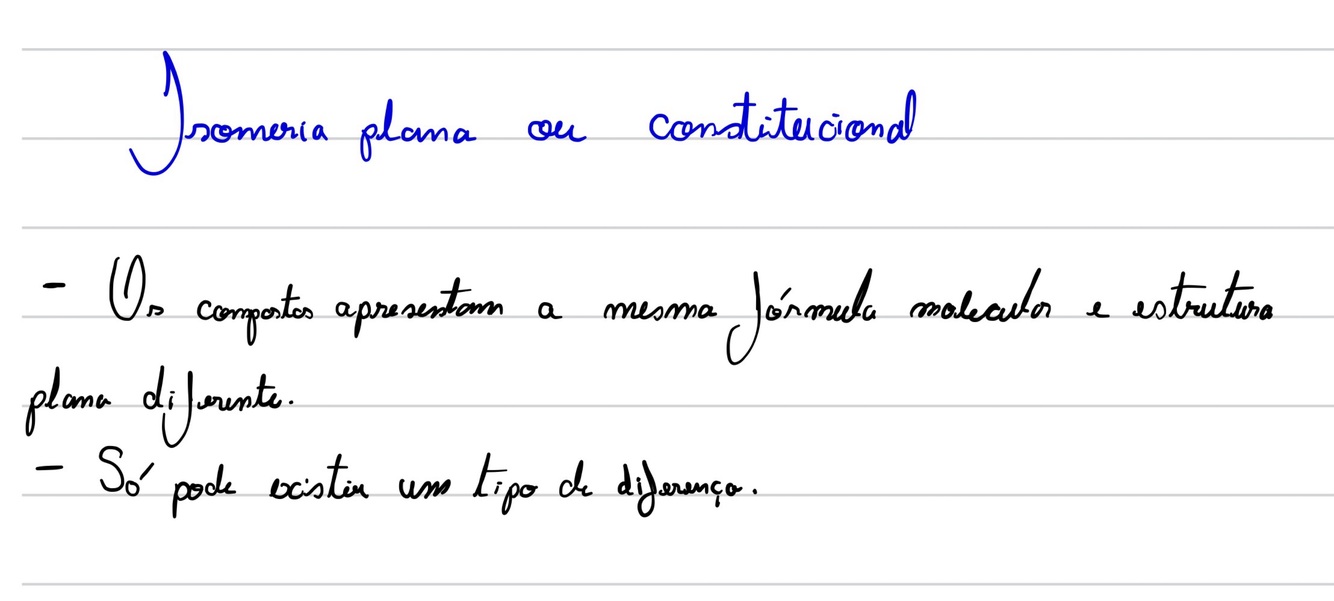 Isomeria plana ou constitucional
- Os compostos apresentam a mesma fórmula molecular e estrutura
plana diferente.
- Só pode existir um tipo de diferença.